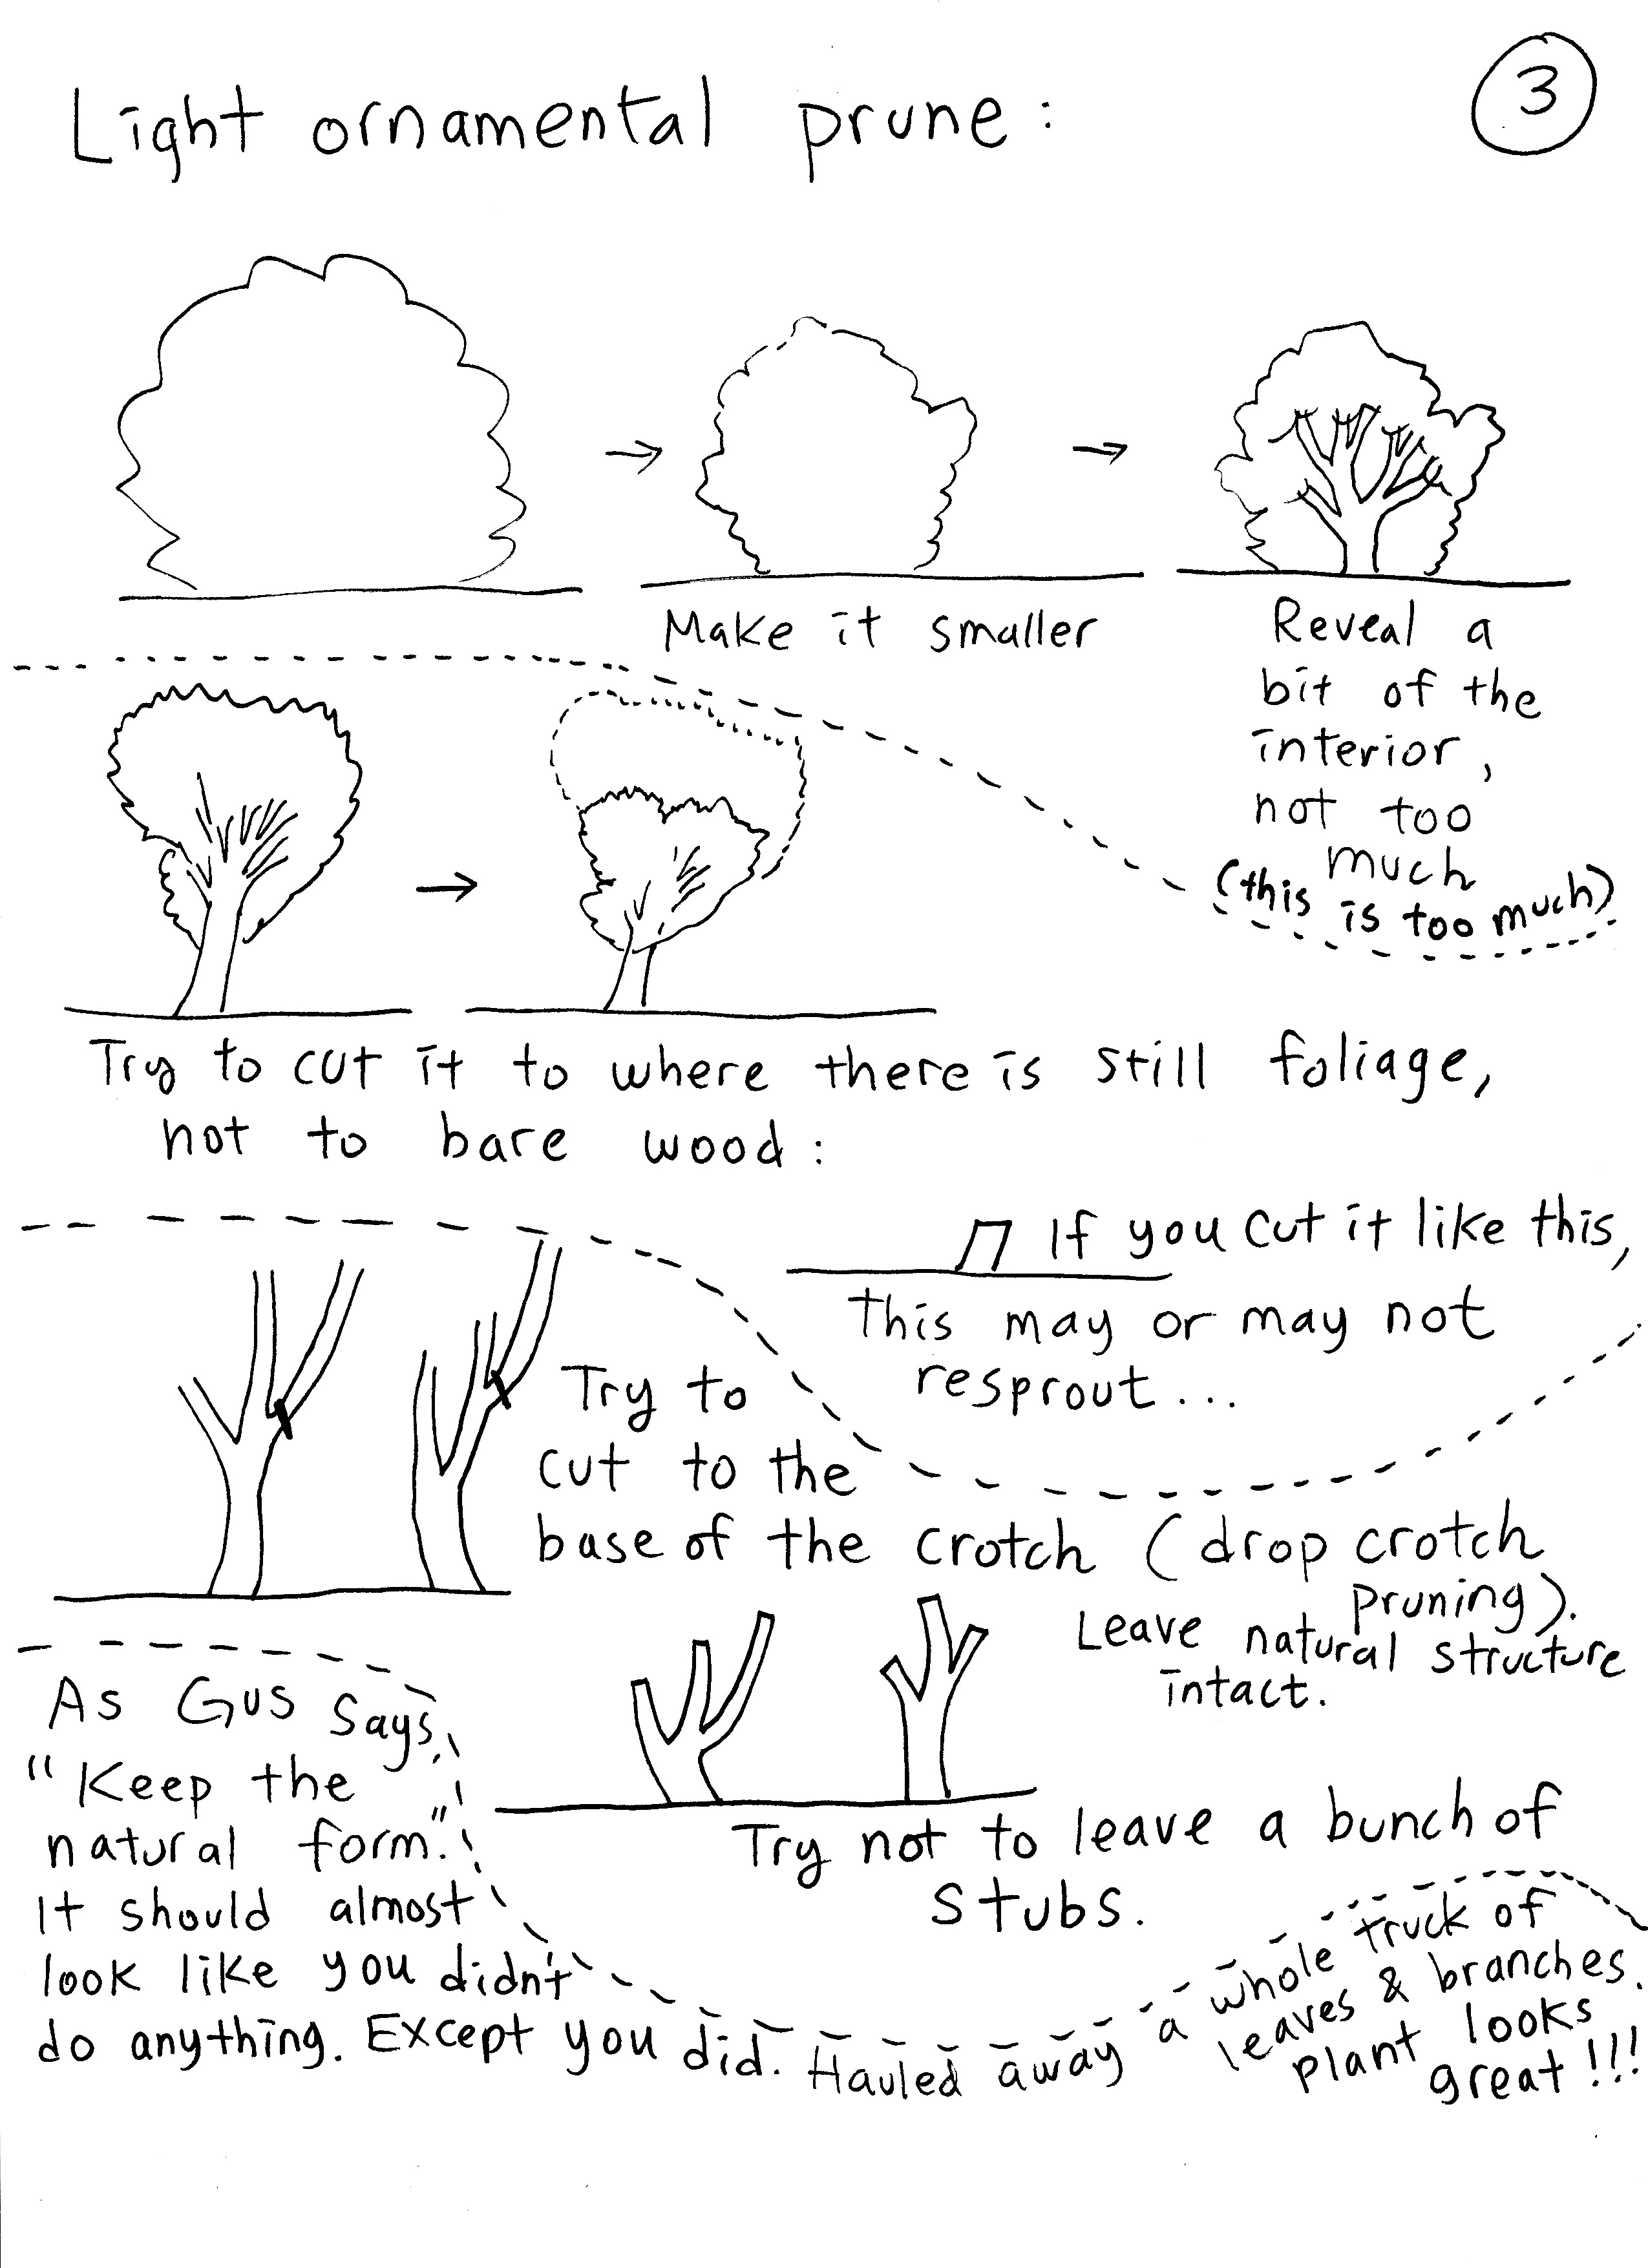 Light ornamental prune:
3
Make it smaller
Reveal a
bit of the
interior,
not too
much
(this is too much)
Try to cut it to where there is still foliage,
not to bare wood:
If you cut it like this,
this may or may not
resprout...
Try to
cut to the
base of the crotch (drop crotch
pruning).
Leave natural structure
intact.
Try not to leave a bunch of
stubs.
As Gus says,
"Keep the
natural form."
It should almost
look like you didn't
do anything. Except you did. Hauled away a whole truck of
leaves & branches.
plant looks
great!!!